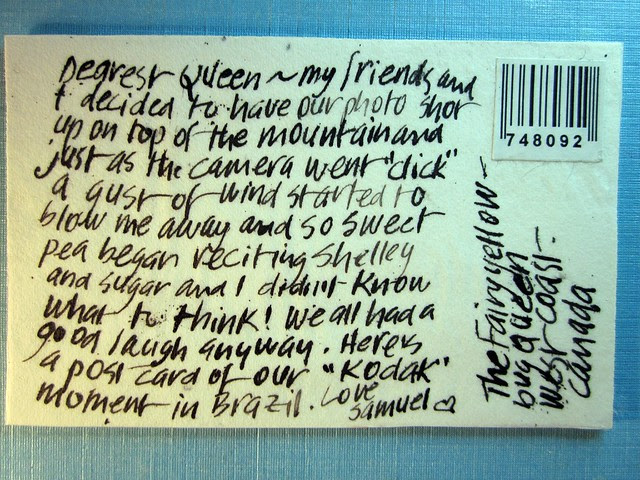 Dearest Queen ~ my friends and
I decided to have our photo shot
up on top of the mountain and
just as the camera went "click"
a gust of wind started to
blow me away and so sweet
pea began reciting Shelley
and sugar and I didn't know
what to think! We all had a
good laugh anyway. Here's
a post card of our "Kodak"
moment in Brazil. Love
Samuel ♡
748092
The Fairy yellow-
bug queen
west coast-
Canada